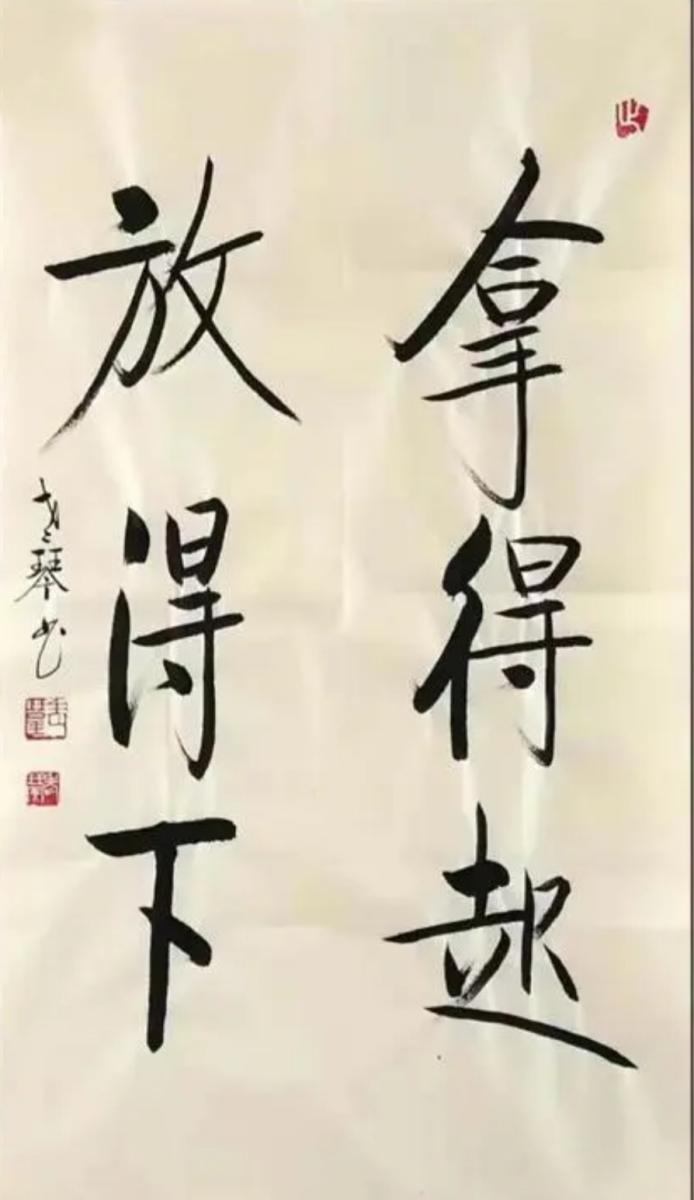 拿得起
放得下
琴书